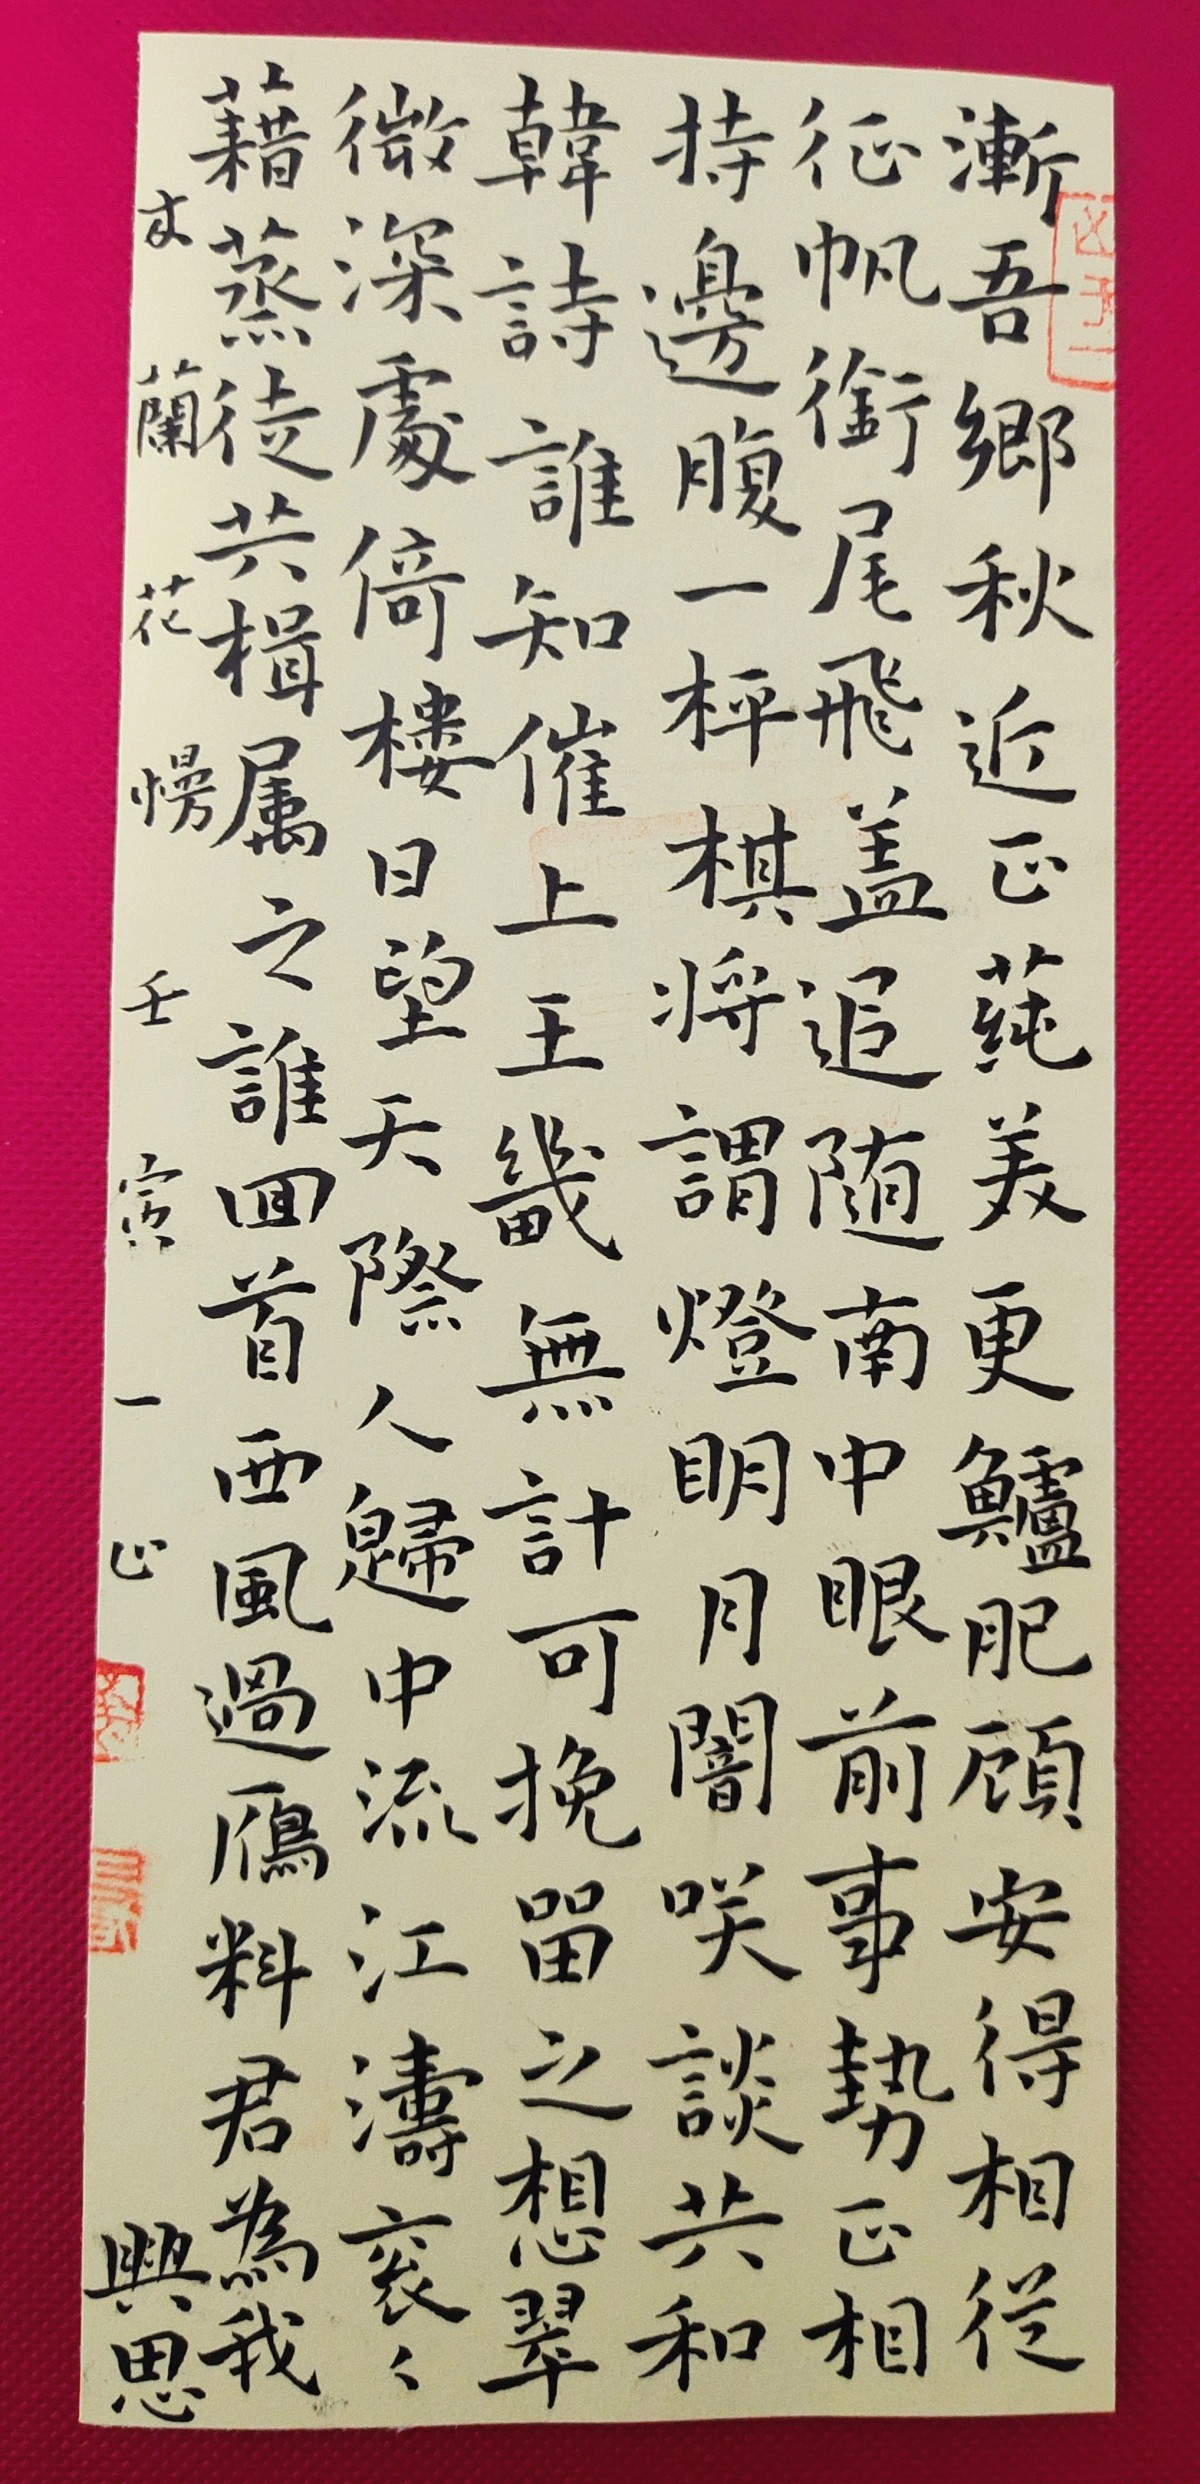 漸吾鄉秋近正蒓美更鱸肥顧安得相從
征帆銜尾飛蓋追随南中眼前事勢正相
持邊腹一枰棋將謂燈明月闇咲談共和
韓詩誰知催上王畿無計可挽留之想翠
微深處倚樓日望天際人歸中流江濤衮〻
藉蒸徒共楫属之誰回首西風過鴈料君為我
興思
木蘭花慢 壬寅 一正